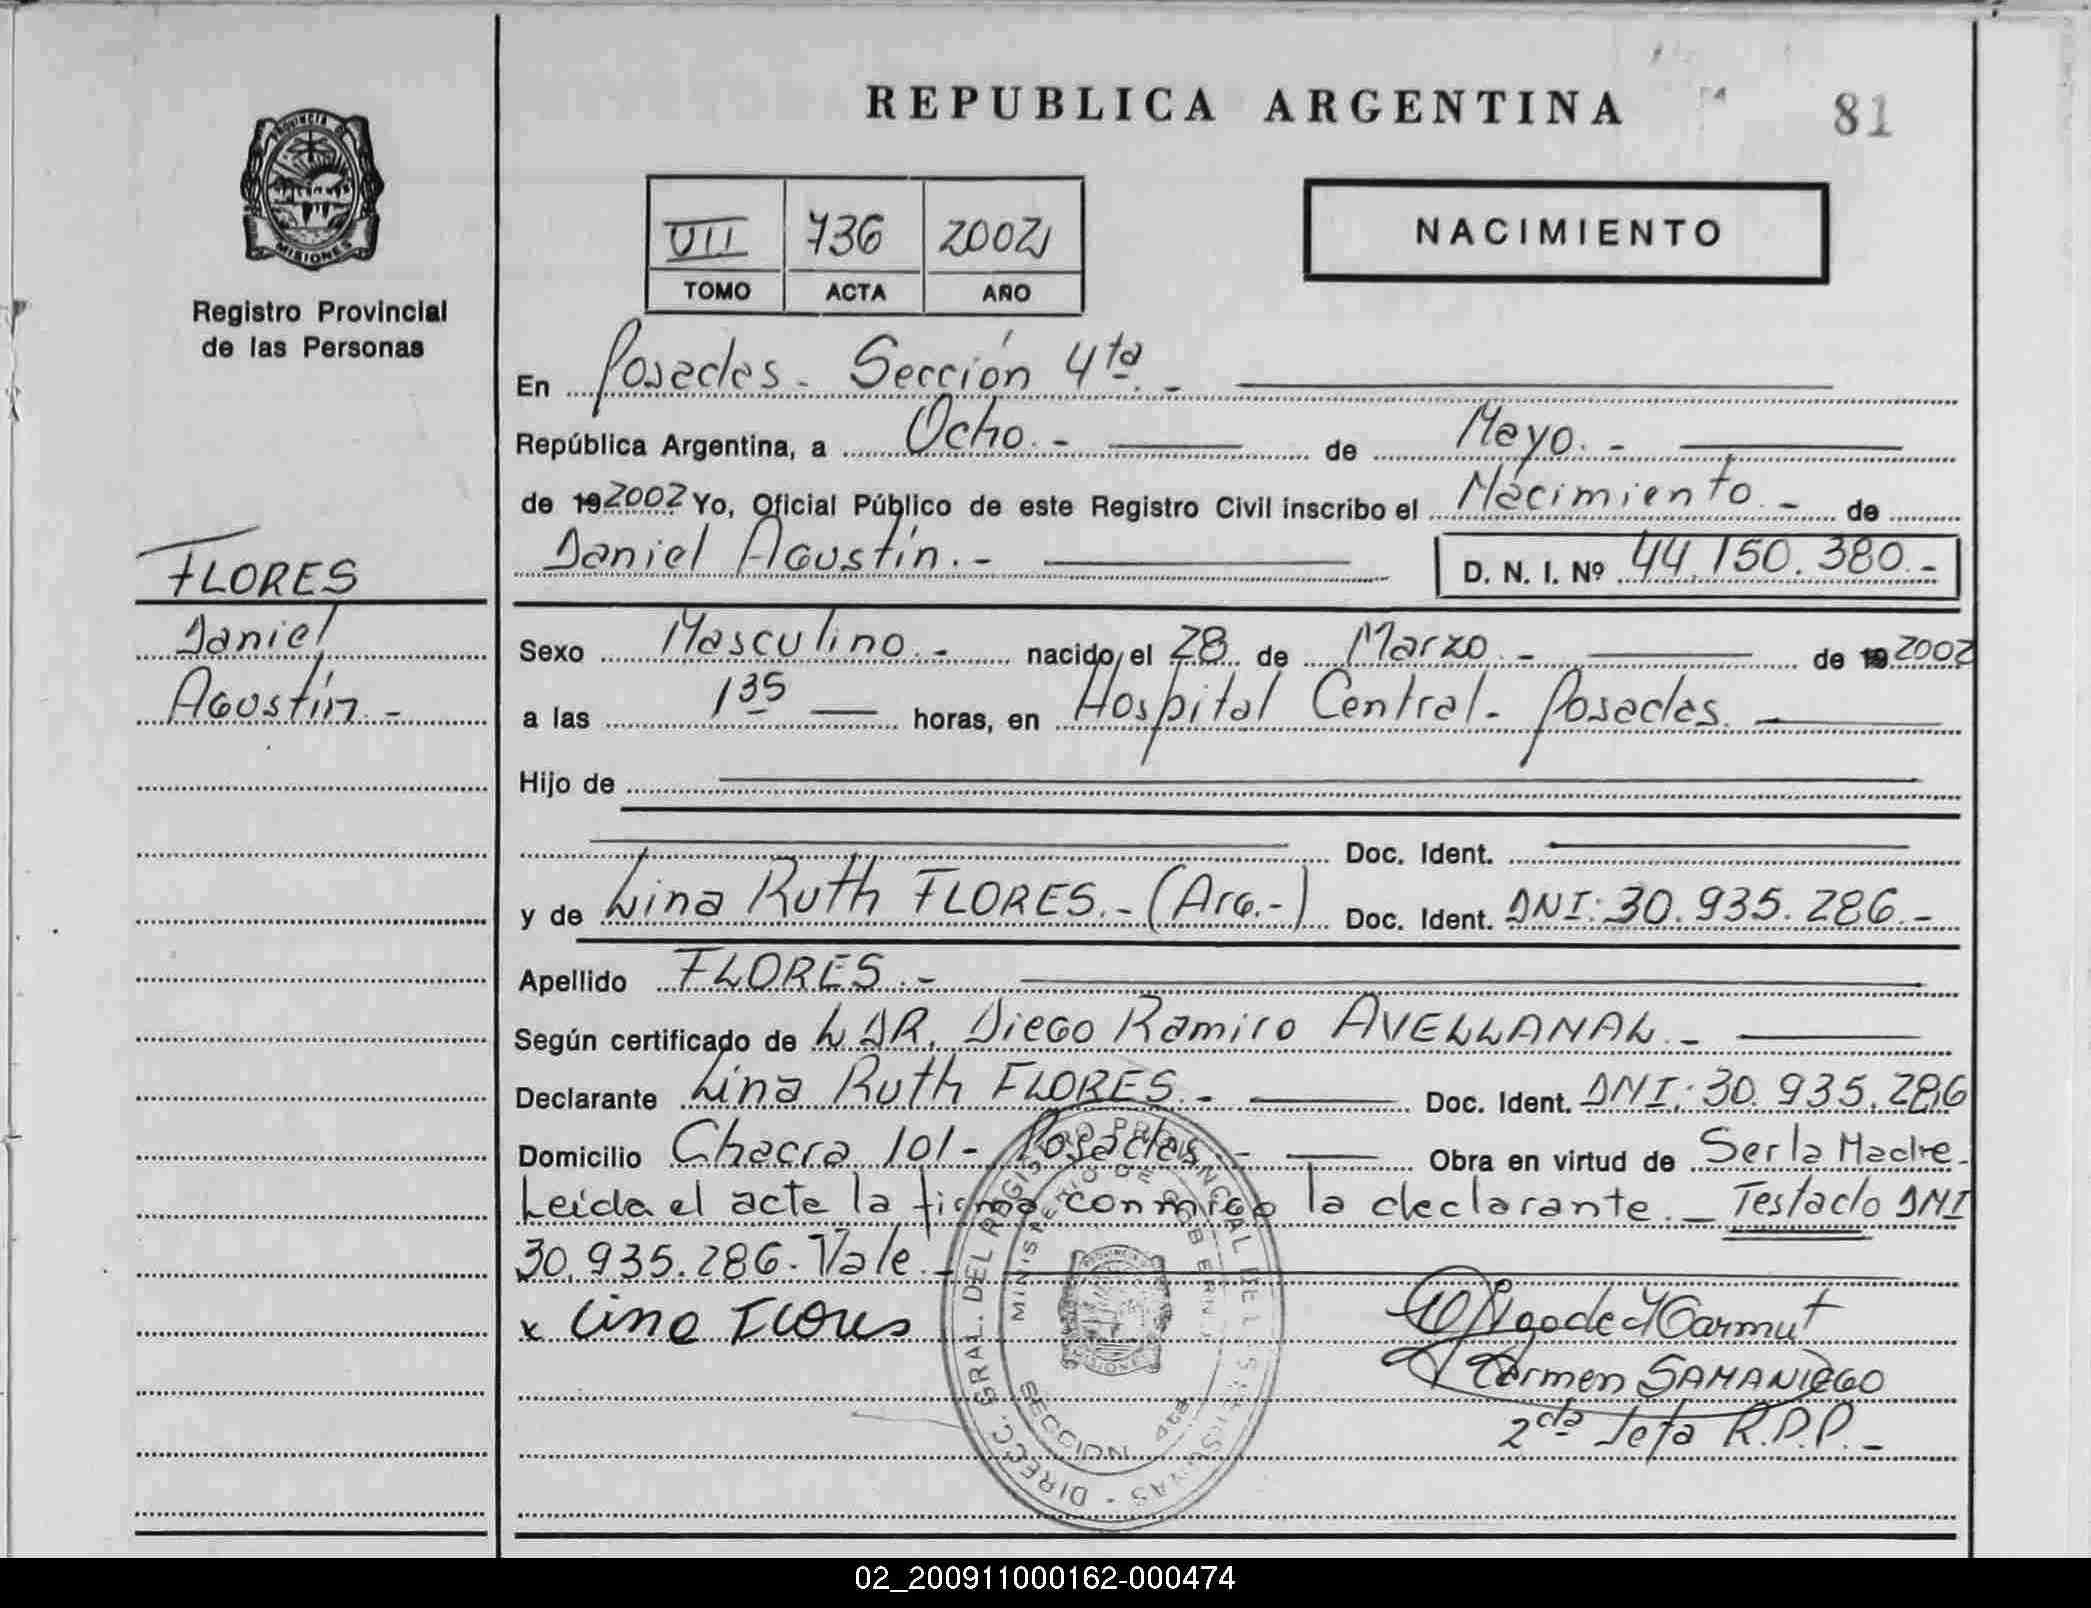 REPUBLICA ARGENTINA
81
PROVINCIA DE
MISIONES
Registro Provincial
de las Personas
VII 736 2002
TOMO ACTA AÑO
NACIMIENTO
En Posadas - Sección 4ta. -
República Argentina, a Ocho. - de Mayo. -
de 19 2002 Yo, Oficial Público de este Registro Civil inscribo el Nacimiento. - de
Daniel Agustín. - D. N. I. Nº 44.150.380. -
FLORES
Daniel
Agustín. -
Sexo Masculino. - nacido el 28 de Marzo. - de 19 2002
a las 1 35 horas, en Hospital Central - Posadas.
Hijo de
Doc. Ident.
y de Lina Ruth FLORES. - (Arg. -) Doc. Ident. DNI: 30.935.286. -
Apellido FLORES. -
Según certificado de LDR. Diego Ramiro AVELLANAL. -
Declarante Lina Ruth FLORES. - Doc. Ident. DNI: 30.935.286
Domicilio Chacra 101 - Posadas. - Obra en virtud de Ser la Madre. -
Leída el acta la firma conmigo la declarante. - Testado DNI
30.935.286. Vale. -
x Lina Flores
Carmen SAMANIEGO
2da Jefa R.P.P. -
DIRECC. GRAL. DEL REGISTRO PROVINCIAL DE LAS PERSONAS -
MINISTERIO DE GOBIERNO
SECCION 4ta
02_200911000162-000474